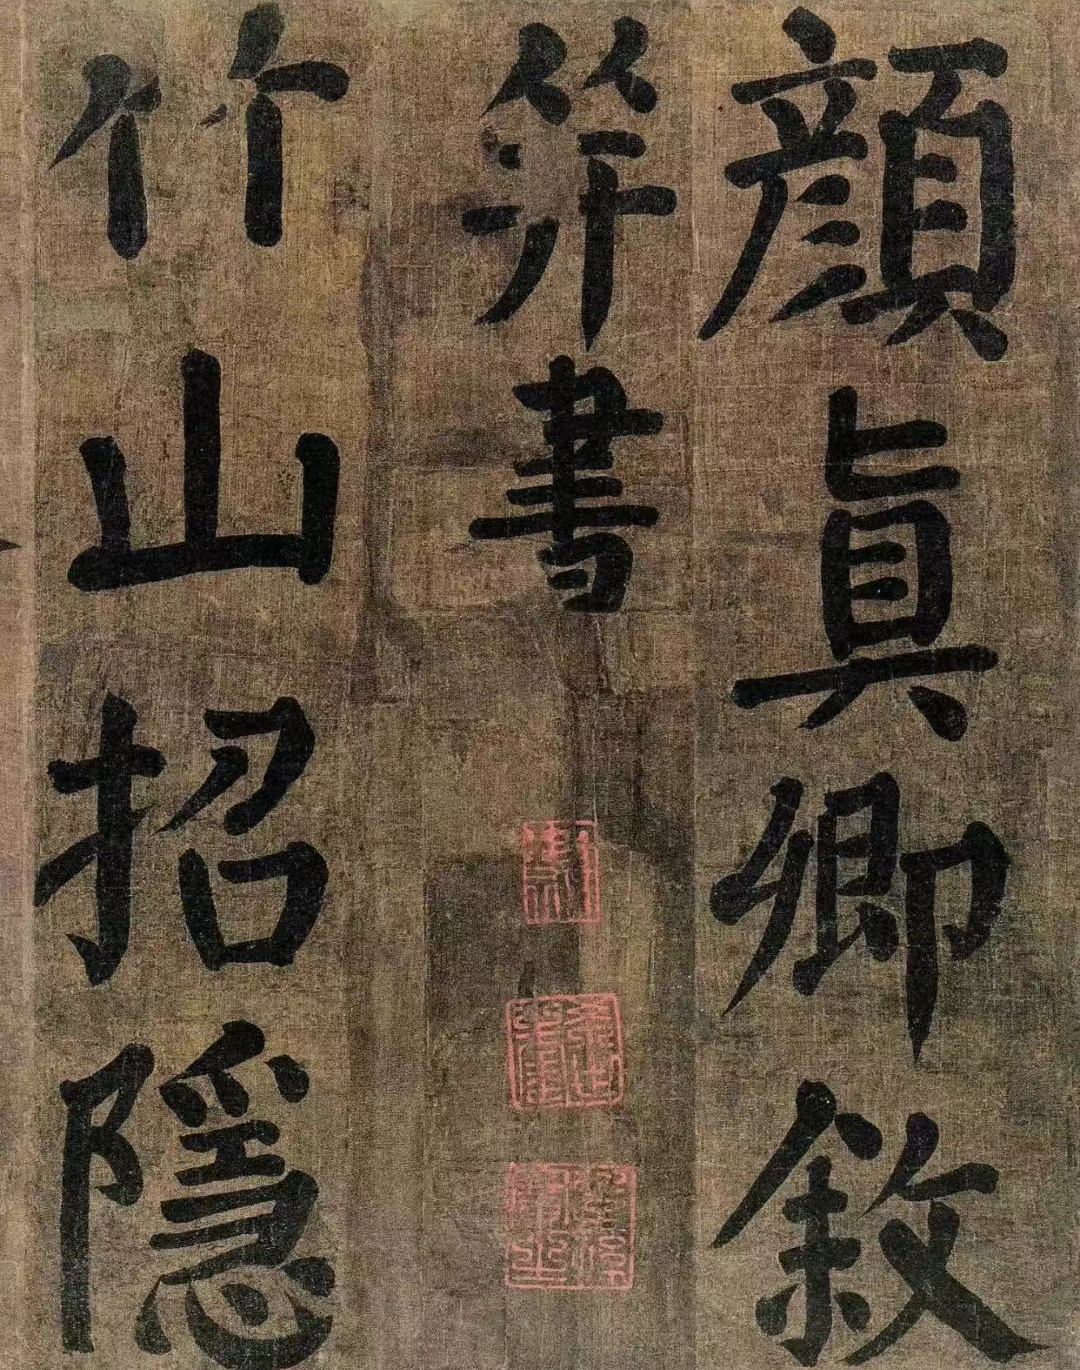 顔真卿敘
并書
竹山招隱